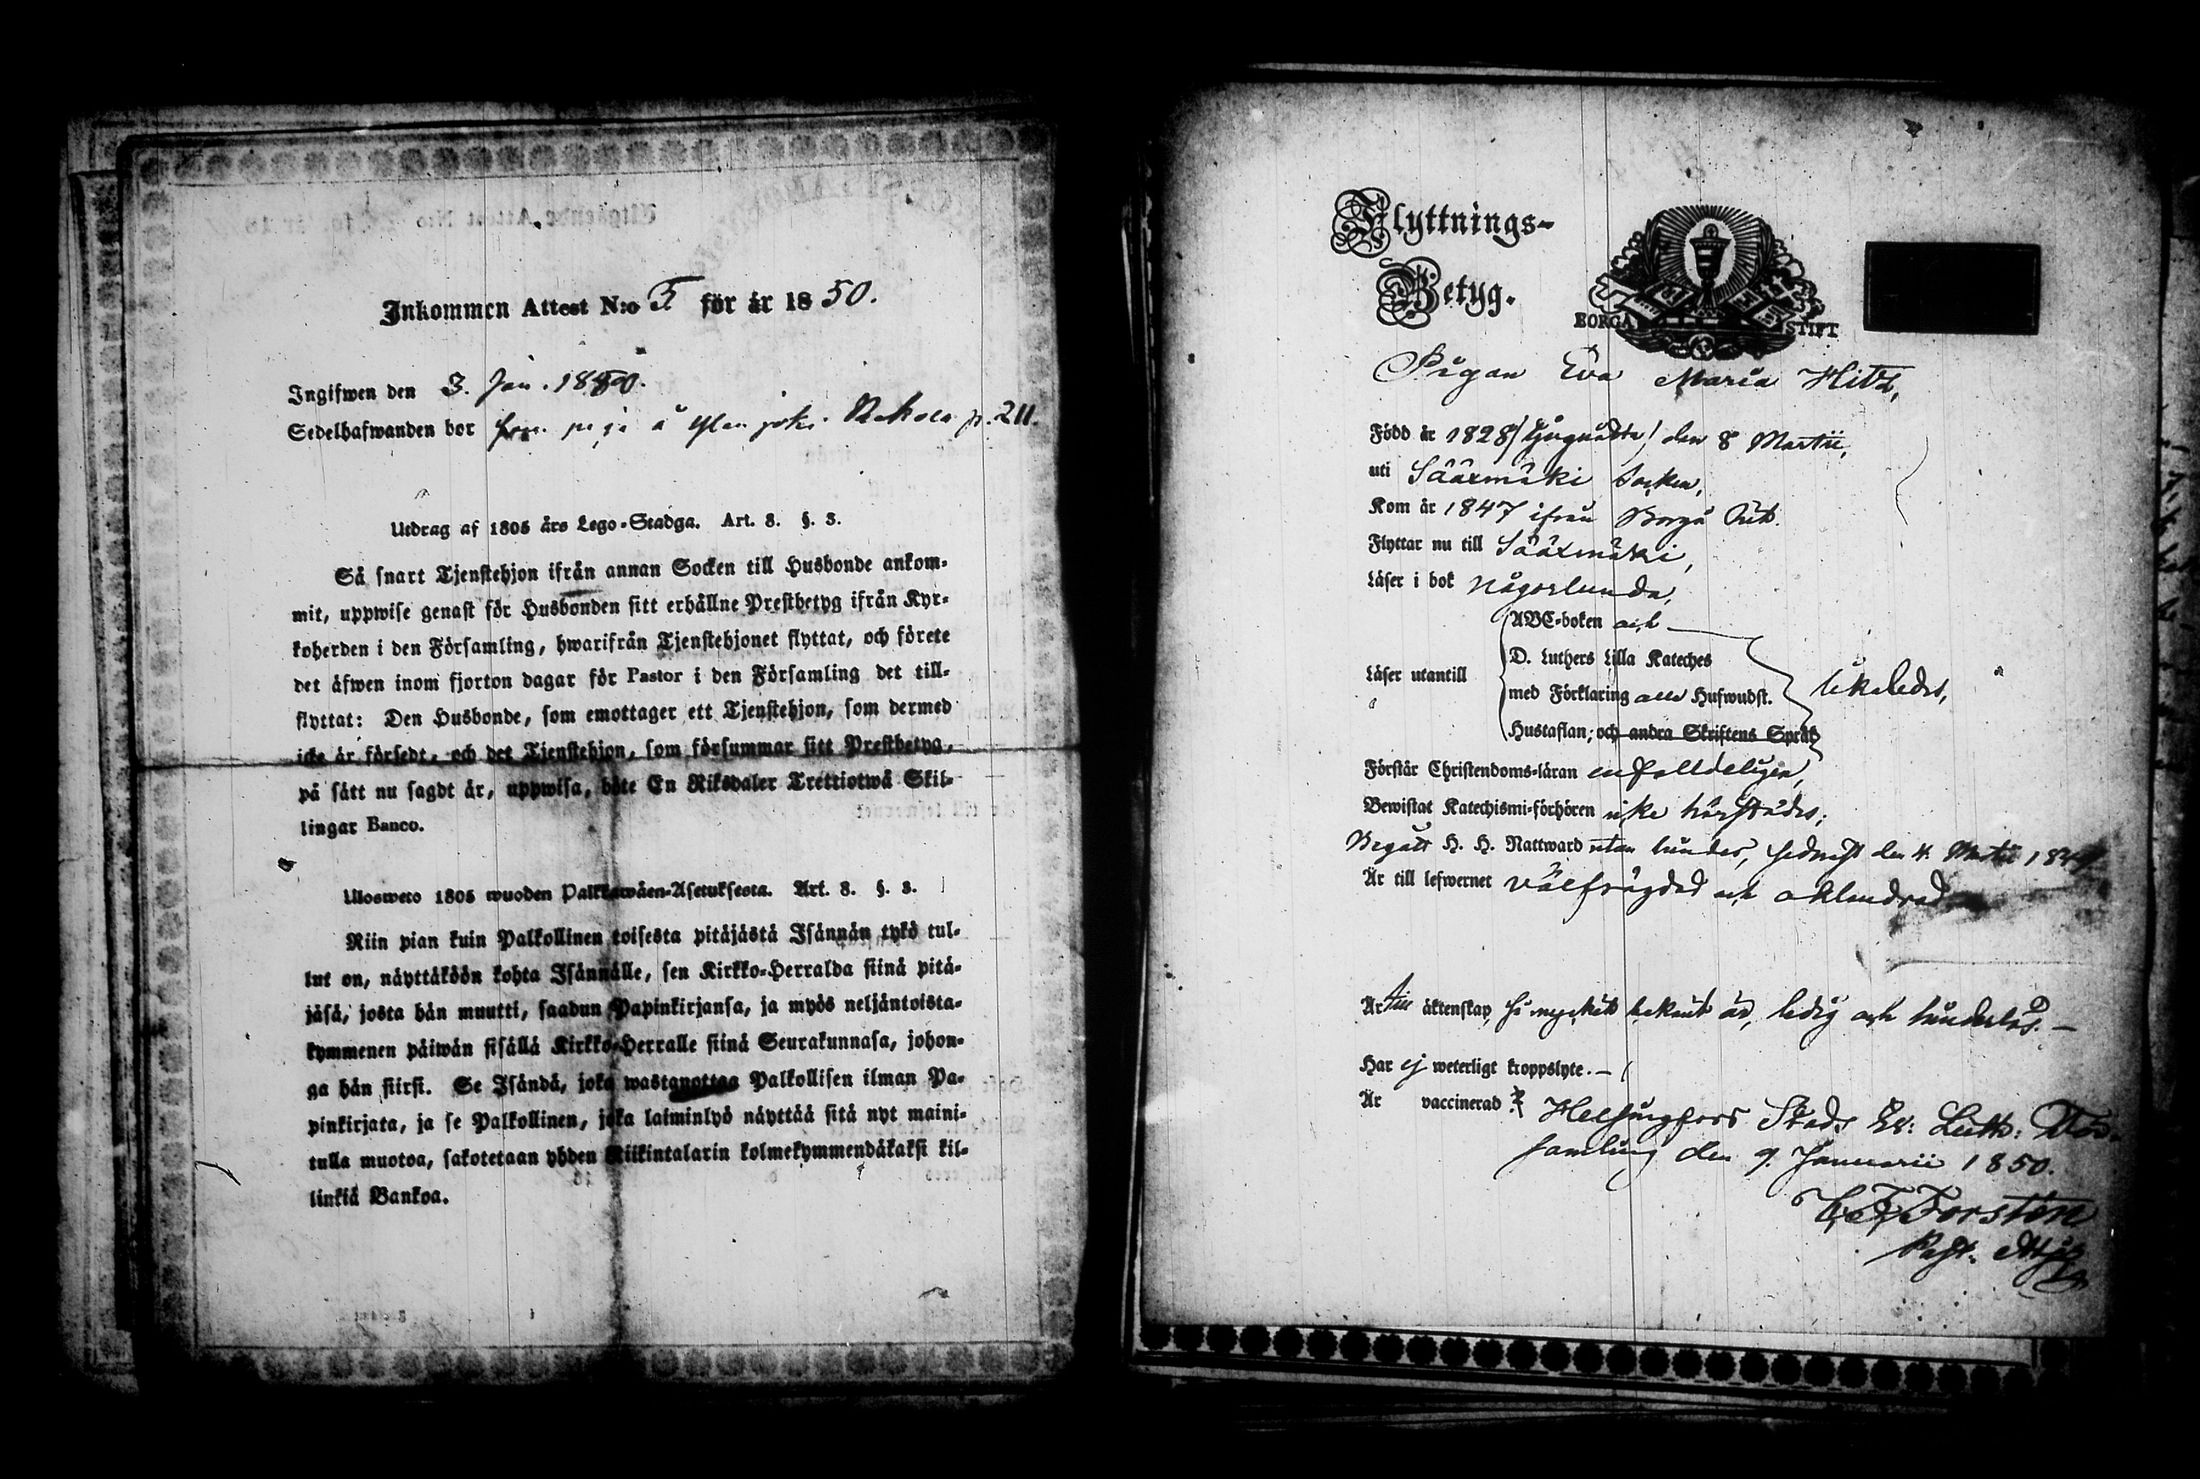 Inkommen Attest N:o 5 för år 1850.
Ingifwen den 3. Jan. 1850.
Sedelhafwanden bor p. 211.
Utdrag af 1805 års Lego-Stadga. Art. 8. §. 3.
Så snart Tjenstehjon ifrån annan Socken till Husbonde ankom-
mit, uppwise genast för Husbonden sitt erhållne Prestbetyg ifrån Kyr-
koherden i den Församling, hwarifrån Tjenstehjonet flyttat, och förete
det äfwen inom fjorton dagar för Pastor i den Församling det till-
flyttat: Den Husbonde, som emottager ett Tjenstehjon, som dermed
icke är försedt, och det Tjenstehjon, som försummar sitt Prestbetyg,
på sätt nu sagdt är, uppwisa, böte En Riksdaler Trettiotwå Skil-
lingar Banco.
Ulosweto 1805 wuoden Palkkawäen-Asetuksesta. Art. 8. §. 3.
Niin pian kuin Palkollinen toisesta pitäjästä Isännän tykö tul-
lut on, näyttäköön kohta Isännälle, sen Kirkko-Herralda siinä pitä-
jäsä, josta hän muutti, saadun Papinkirjansa, ja myös neljäntoista-
kymmenen päiwän sisällä Kirkko-Herralle siinä Seurakunnasa, johon-
ga hän siirsi. Se Isändä, joka wastanottaa Palkollisen ilman Pa-
pinkirjata, ja se Palkollinen, joka laiminlyö näyttää sitä nyt maini-
tulla muotoa, sakotetaan yhden Riikintalarin kolmekymmendäkaksi kil-
linkiä Bankoa.
Flyttnings-
Betyg.
BORGÅ STIFT
Pigan Eva Maria Hitz,
Född år 1828 den 8 Martii,
uti Sääxmäki Socken,
Kom år 1847 ifrån Borgå
Flyttar nu till Sääxmäki,
Läser i bok någorlunda,
Läser utantill
ABC-boken och
D. Luthers Lilla Kateches
med Förklaring alla Hufwudst.
Hustaflan; och andra Skriftens Språk
likaledes,
Förstår Christendoms-läran enfaldeligen,
Bewistat Katechismi-förhören icke härstädes;
Begått H. H. Nattward utan hinder, sednast den 4. Martii 1849
Är till lefwernet välfrägdad och oklandrad
Är till äktenskap, så mycket bekant är, ledig och hinderlös. —
Har ej weterligt kroppslyte. —
Är vaccinerad. Helsingfors Stads Ev: Luth: För-
samling den 9. Januarii 1850.
Forstén
Past. Adj.